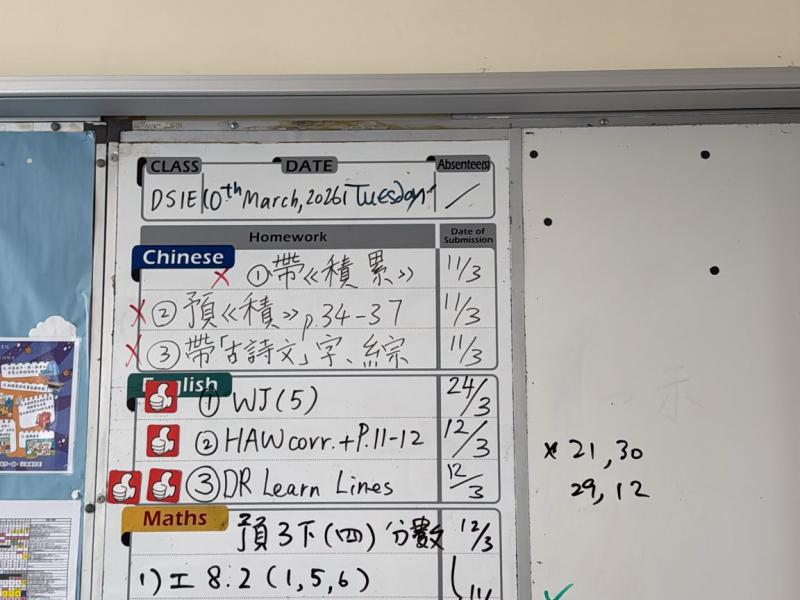 CLASS DATE Absentee(s)
D5IE 10th March, 2026 Tuesday /
Homework Date of Submission
Chinese
① 帶《積累》 11/3
② 預《積》p.34-37 11/3
③ 帶「古詩文」字、綜 11/3
English
① WJ(5) 24/3
② HAW corr. + P.11-12 12/3
③ DR Learn Lines 12/3
Maths
預3下(四)分數 12/3
1) 工 8.2 (1,5,6)
21, 30
29, 12